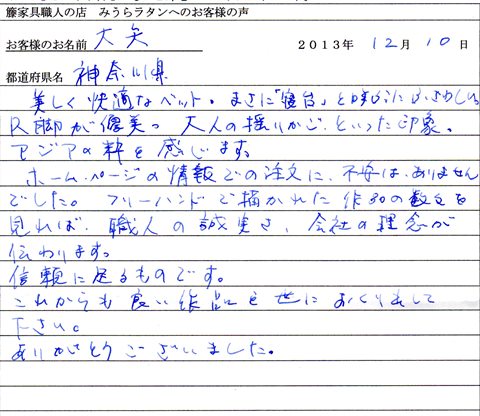 籐家具職人の店　みうらラタンへのお客様の声
お客様のお名前　大矢　2013年 12月 10日
都道府県名　神奈川県
美しく快適なベット。まさに「寝台」と呼ぶにふさわしい
R脚が優美で大人の揺りかごといった印象。
アジアの粋を感じます。
ホームページの情報での注文に、不安はありません
でした。フリーハンドで描かれた作品の数々を
見れば、職人の誠実さ、会社の理念が
伝わります。
信頼に足るものです。
これからも良い作品を世におくり出して
下さい。
ありがとうございました。